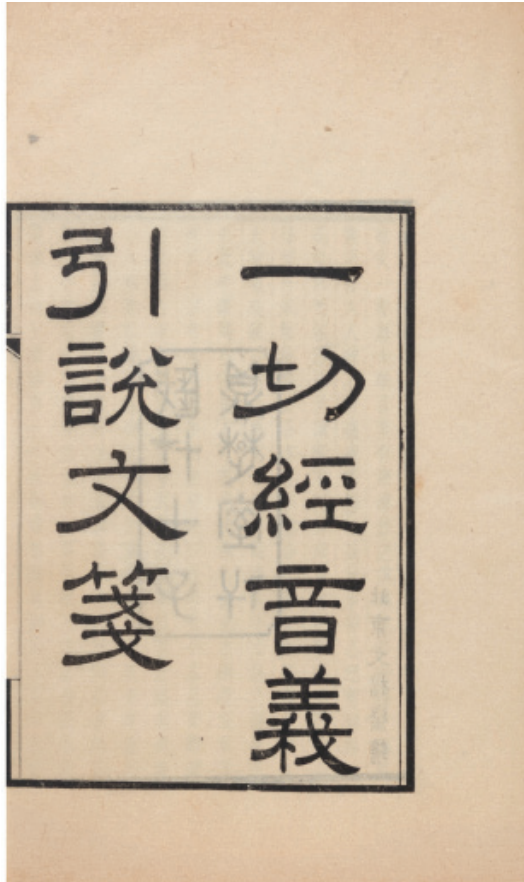 一切經音義
引說文箋